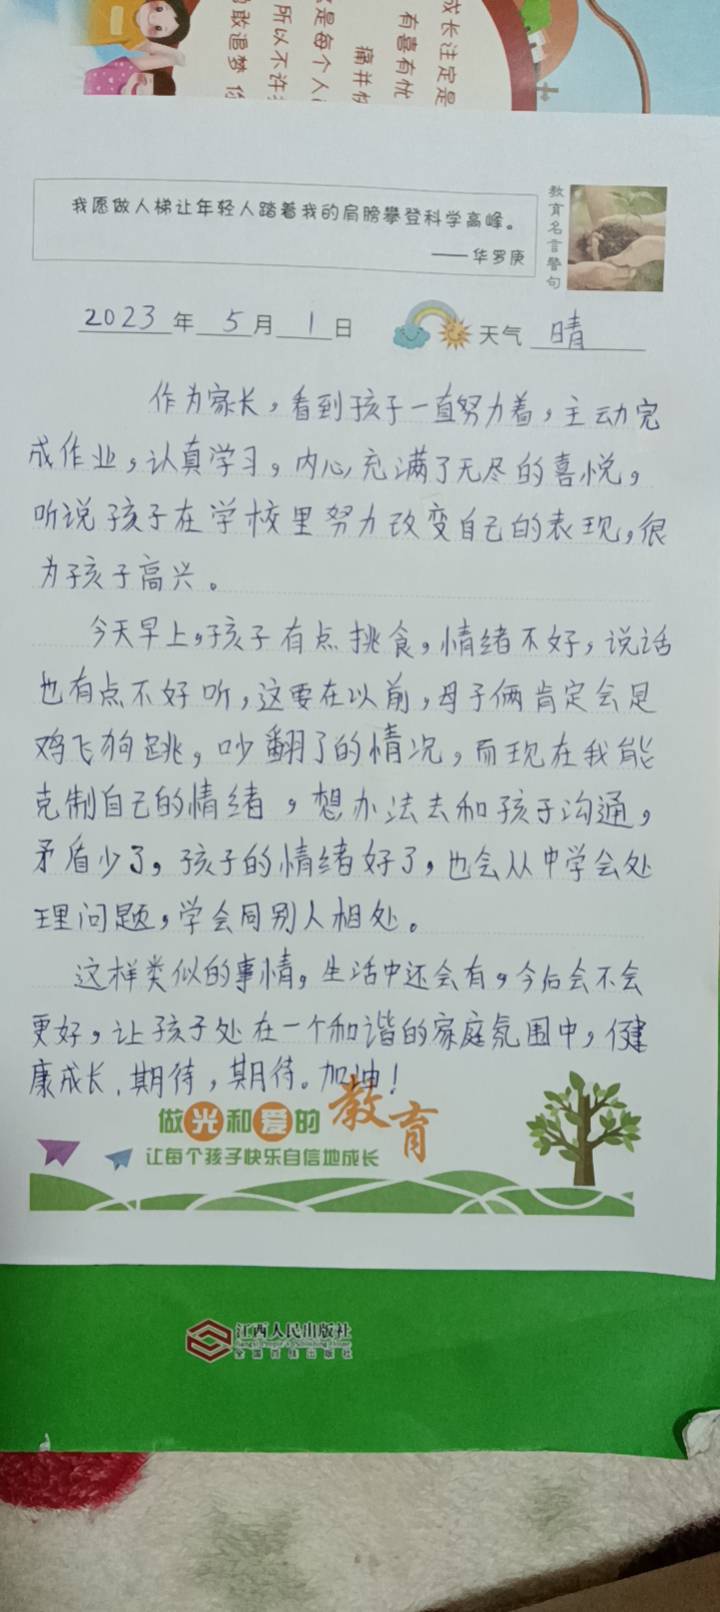 成长注定是
有喜有忧
痛并
是每个人
所以不许
敢追梦
我愿做人梯让年轻人踏着我的肩膀攀登科学高峰。
——华罗庚
教育名言警句
2023年5月1日 天气 晴
作为家长，看到孩子一直努力着，主动完
成作业，认真学习，内心充满了无尽的喜悦，
听说孩子在学校里努力改变自己的表现，很
为孩子高兴。
今天早上，孩子有点挑食，情绪不好，说话
也有点不好听，这要在以前，母子俩肯定会是
鸡飞狗跳，吵翻了的情况，而现在我能
克制自己的情绪，想办法去和孩子沟通，
矛盾少了，孩子的情绪好了，也会从中学会处
理问题，学会同别人相处。
这样类似的事情，生活中还会有，今后会不会
更好，让孩子处在一个和谐的家庭氛围中，健
康成长，期待，期待。加油！
做光和爱的教育
让每个孩子快乐自信地成长
江西人民出版社
全国百佳出版社